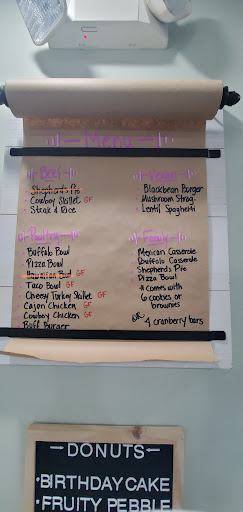 Menu
Beef
Shepherd's Pie
Cowboy Skillet GF
Steak & Rice
Vegan
Blackbean Burger
Mushroom Strog.
Lentil Spaghetti
Poultry
Buffalo Bowl
Pizza Bowl
Hawaiian Bowl GF
Taco Bowl GF
Cheesy Turkey Skillet GF
Cajun Chicken GF
Cowboy Chicken GF
Buff Burger
Family
Mexican Casserole
Buffalo Casserole
Shepherds Pie
Pizza Bowl
* comes with
6 cookies or
brownies
OR 4 cranberry bars
DONUTS
•BIRTHDAY CAKE
•FRUITY PEBBLE